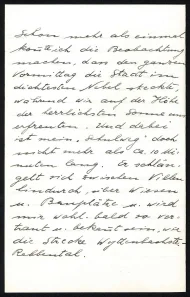 Schon mehr als einmal
konnte ich die Beobachtung
machen, dass den ganzen
Vormittag die Stadt im
dichtesten Nebel steckte,
während wir auf der Höhe
der herrlichsten Sonne uns
erfreuten. Und dabei
ist mein Schulweg doch
nicht mehr als ca. 10 Mi-
nuten lang. Er schlän-
gelt sich zwischen Villen
hindurch, über Wiesen
u. Bauplätze u. wird
mir wohl bald so ver-
traut u. bekannt sein, wie
die Strecke